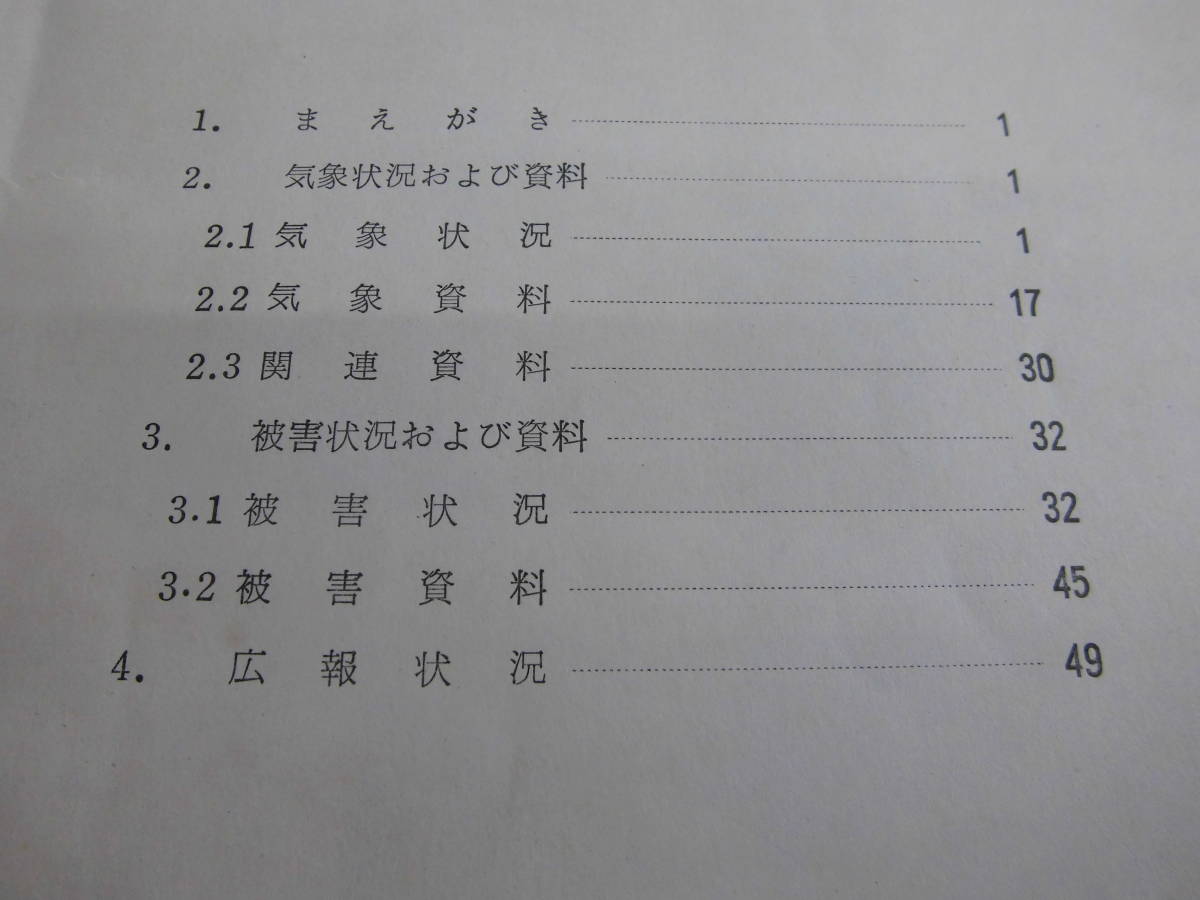 1. まえがき 1
2. 気象状況および資料 1
2.1 気象状況 1
2.2 気象資料 17
2.3 関連資料 30
3. 被害状況および資料 32
3.1 被害状況 32
3.2 被害資料 45
4. 広報状況 49